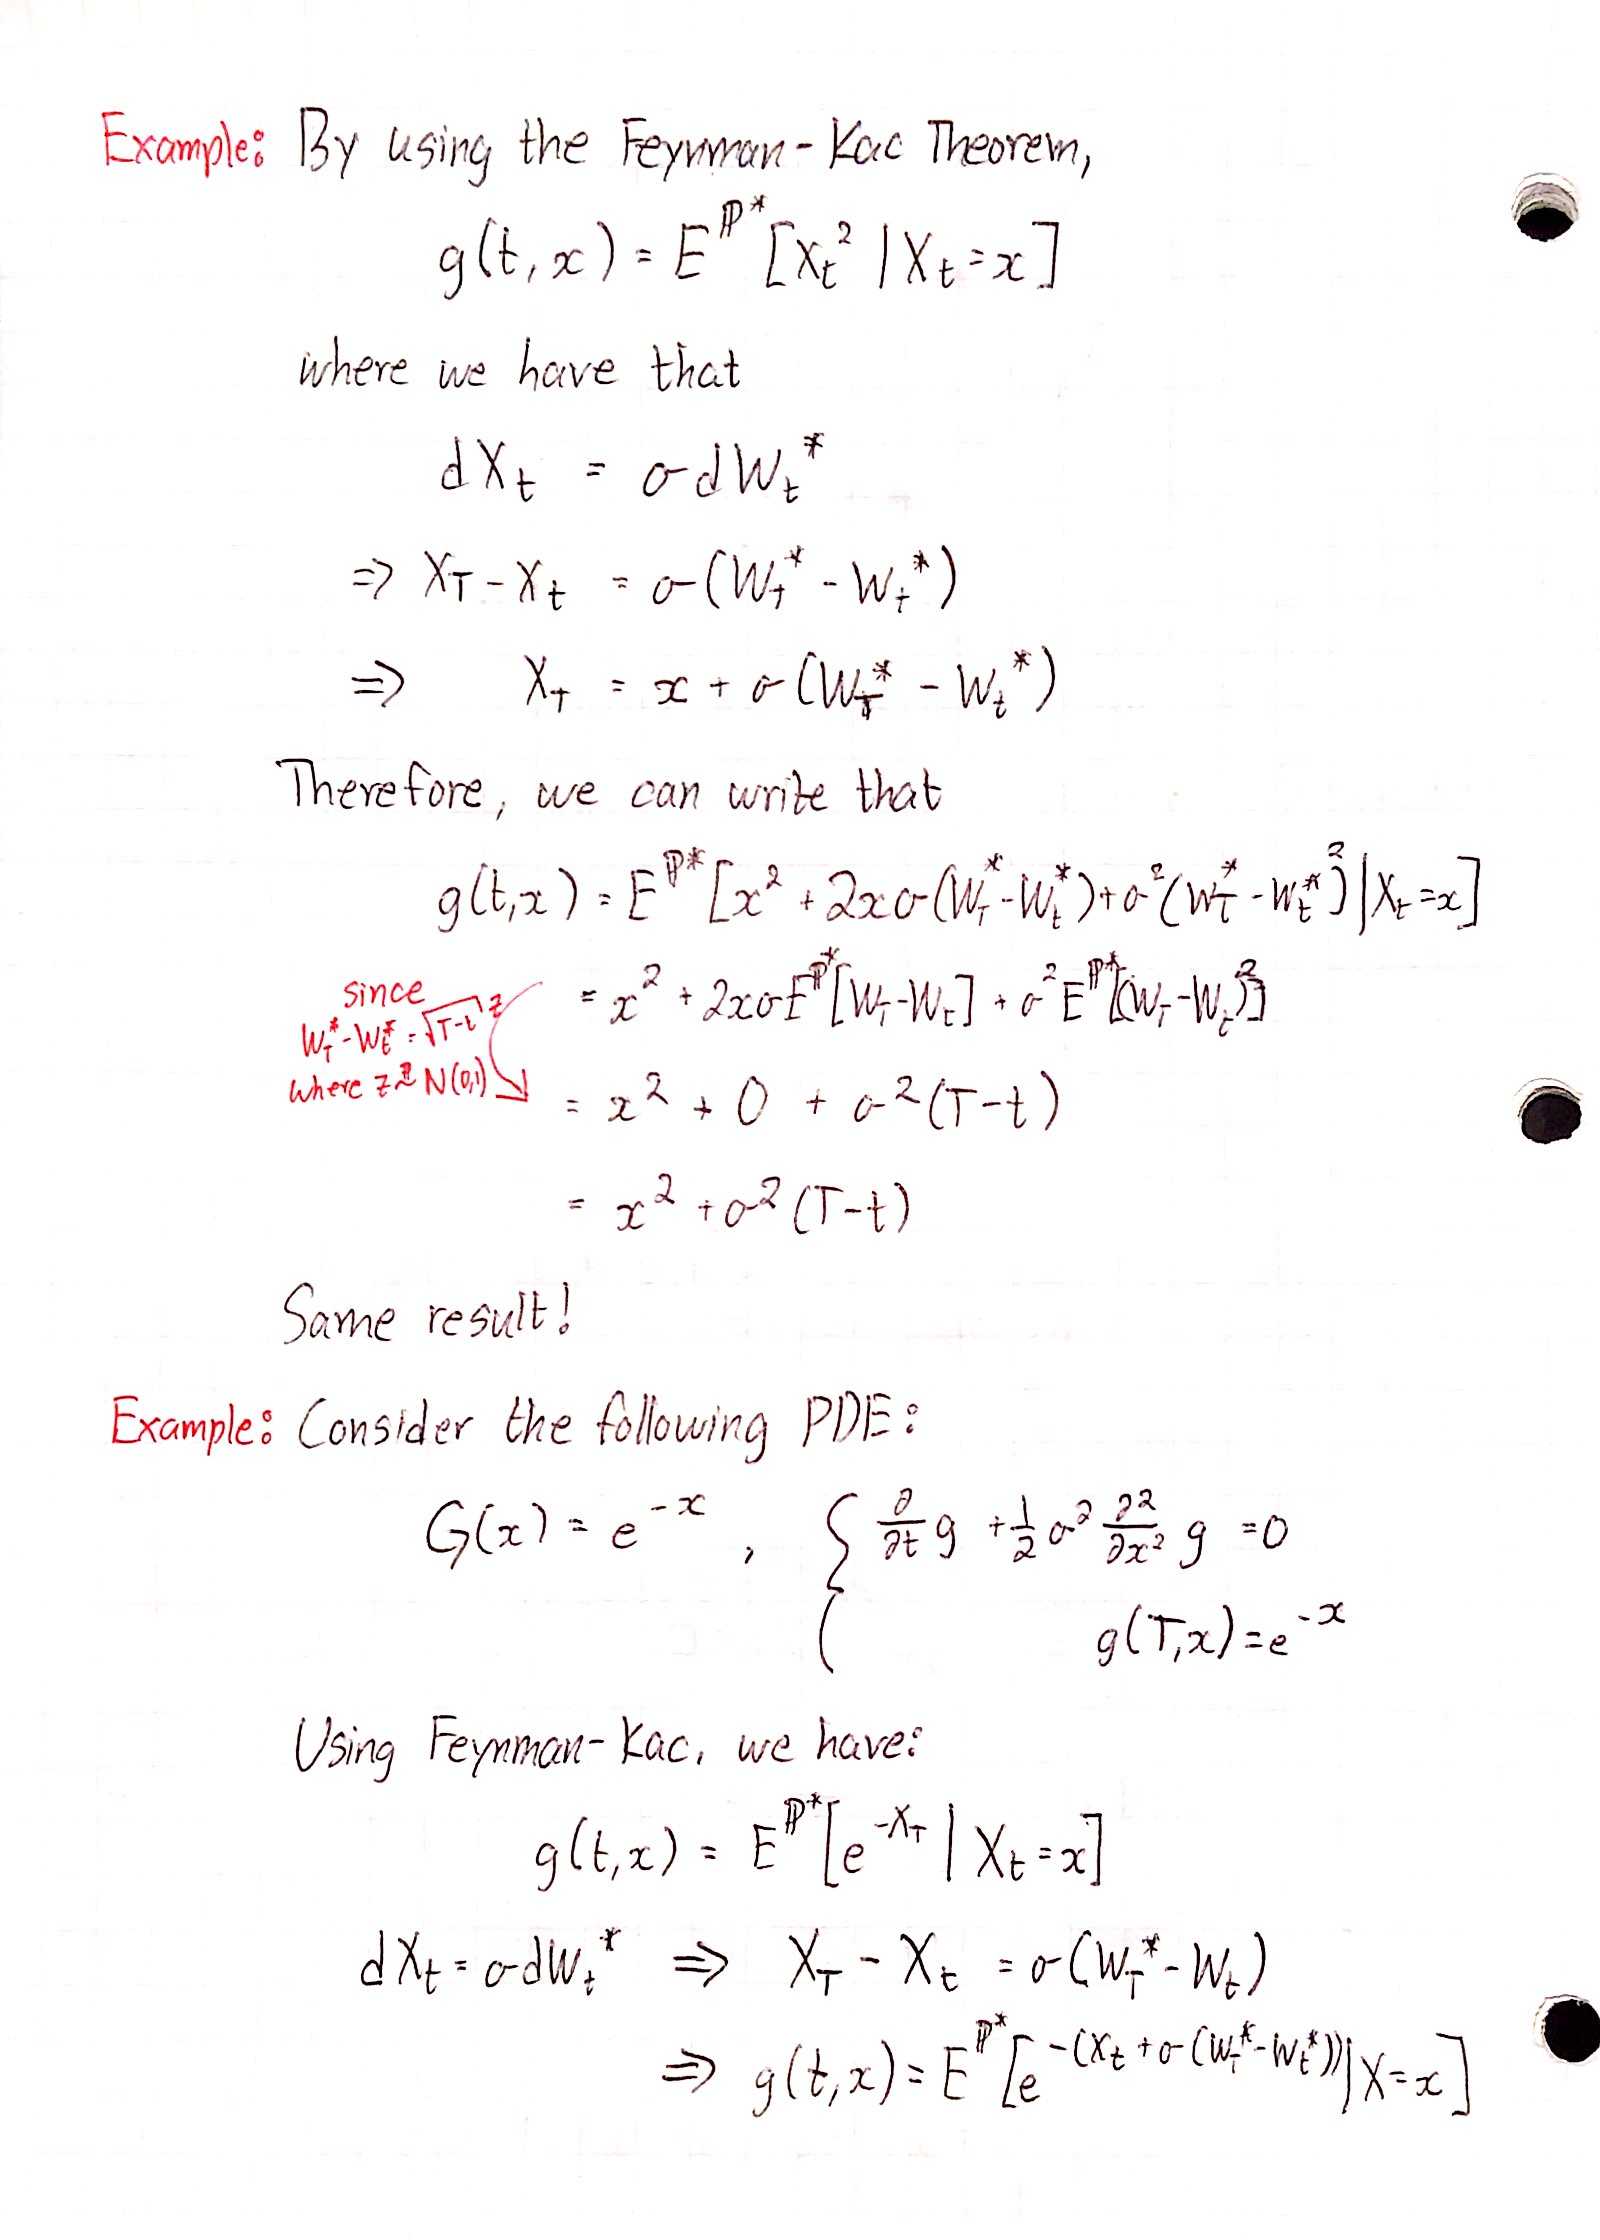 Example: By using the Feynman-Kac Theorem,
g(t,x) = E^{ℙ*}[X_t^2 | X_t = x]
where we have that
dX_t = σdW_t^*
⇒ X_T - X_t = σ(W_T^* - W_t^*)
⇒ X_T = x + σ(W_T^* - W_t^*)
Therefore, we can write that
g(t,x) = E^{ℙ*}[x^2 + 2xσ(W_T^* - W_t^*) + σ^2(W_T^* - W_t^*)^2 | X_t = x]
= x^2 + 2xσE^{ℙ*}[W_T - W_t] + σ^2E^{ℙ*}[(W_T - W_t)^2]
since
W_T^* - W_t^* = √(T-t) z
where z ~^ℙ N(0,1)
= x^2 + 0 + σ^2(T-t)
= x^2 + σ^2(T-t)
Same result!
Example: Consider the following PDE:
G(x) = e^{-x}, { ∂/∂t g + 1/2 σ^2 ∂^2/∂x^2 g = 0
g(T,x) = e^{-x}
Using Feynman-Kac, we have:
g(t,x) = E^{ℙ*}[e^{-X_T} | X_t = x]
dX_t = σdW_t^* ⇒ X_T - X_t = σ(W_T^* - W_t)
⇒ g(t,x) = E^{ℙ*}[e^{-(X_t + σ(W_T^* - W_t^*))} | X = x]